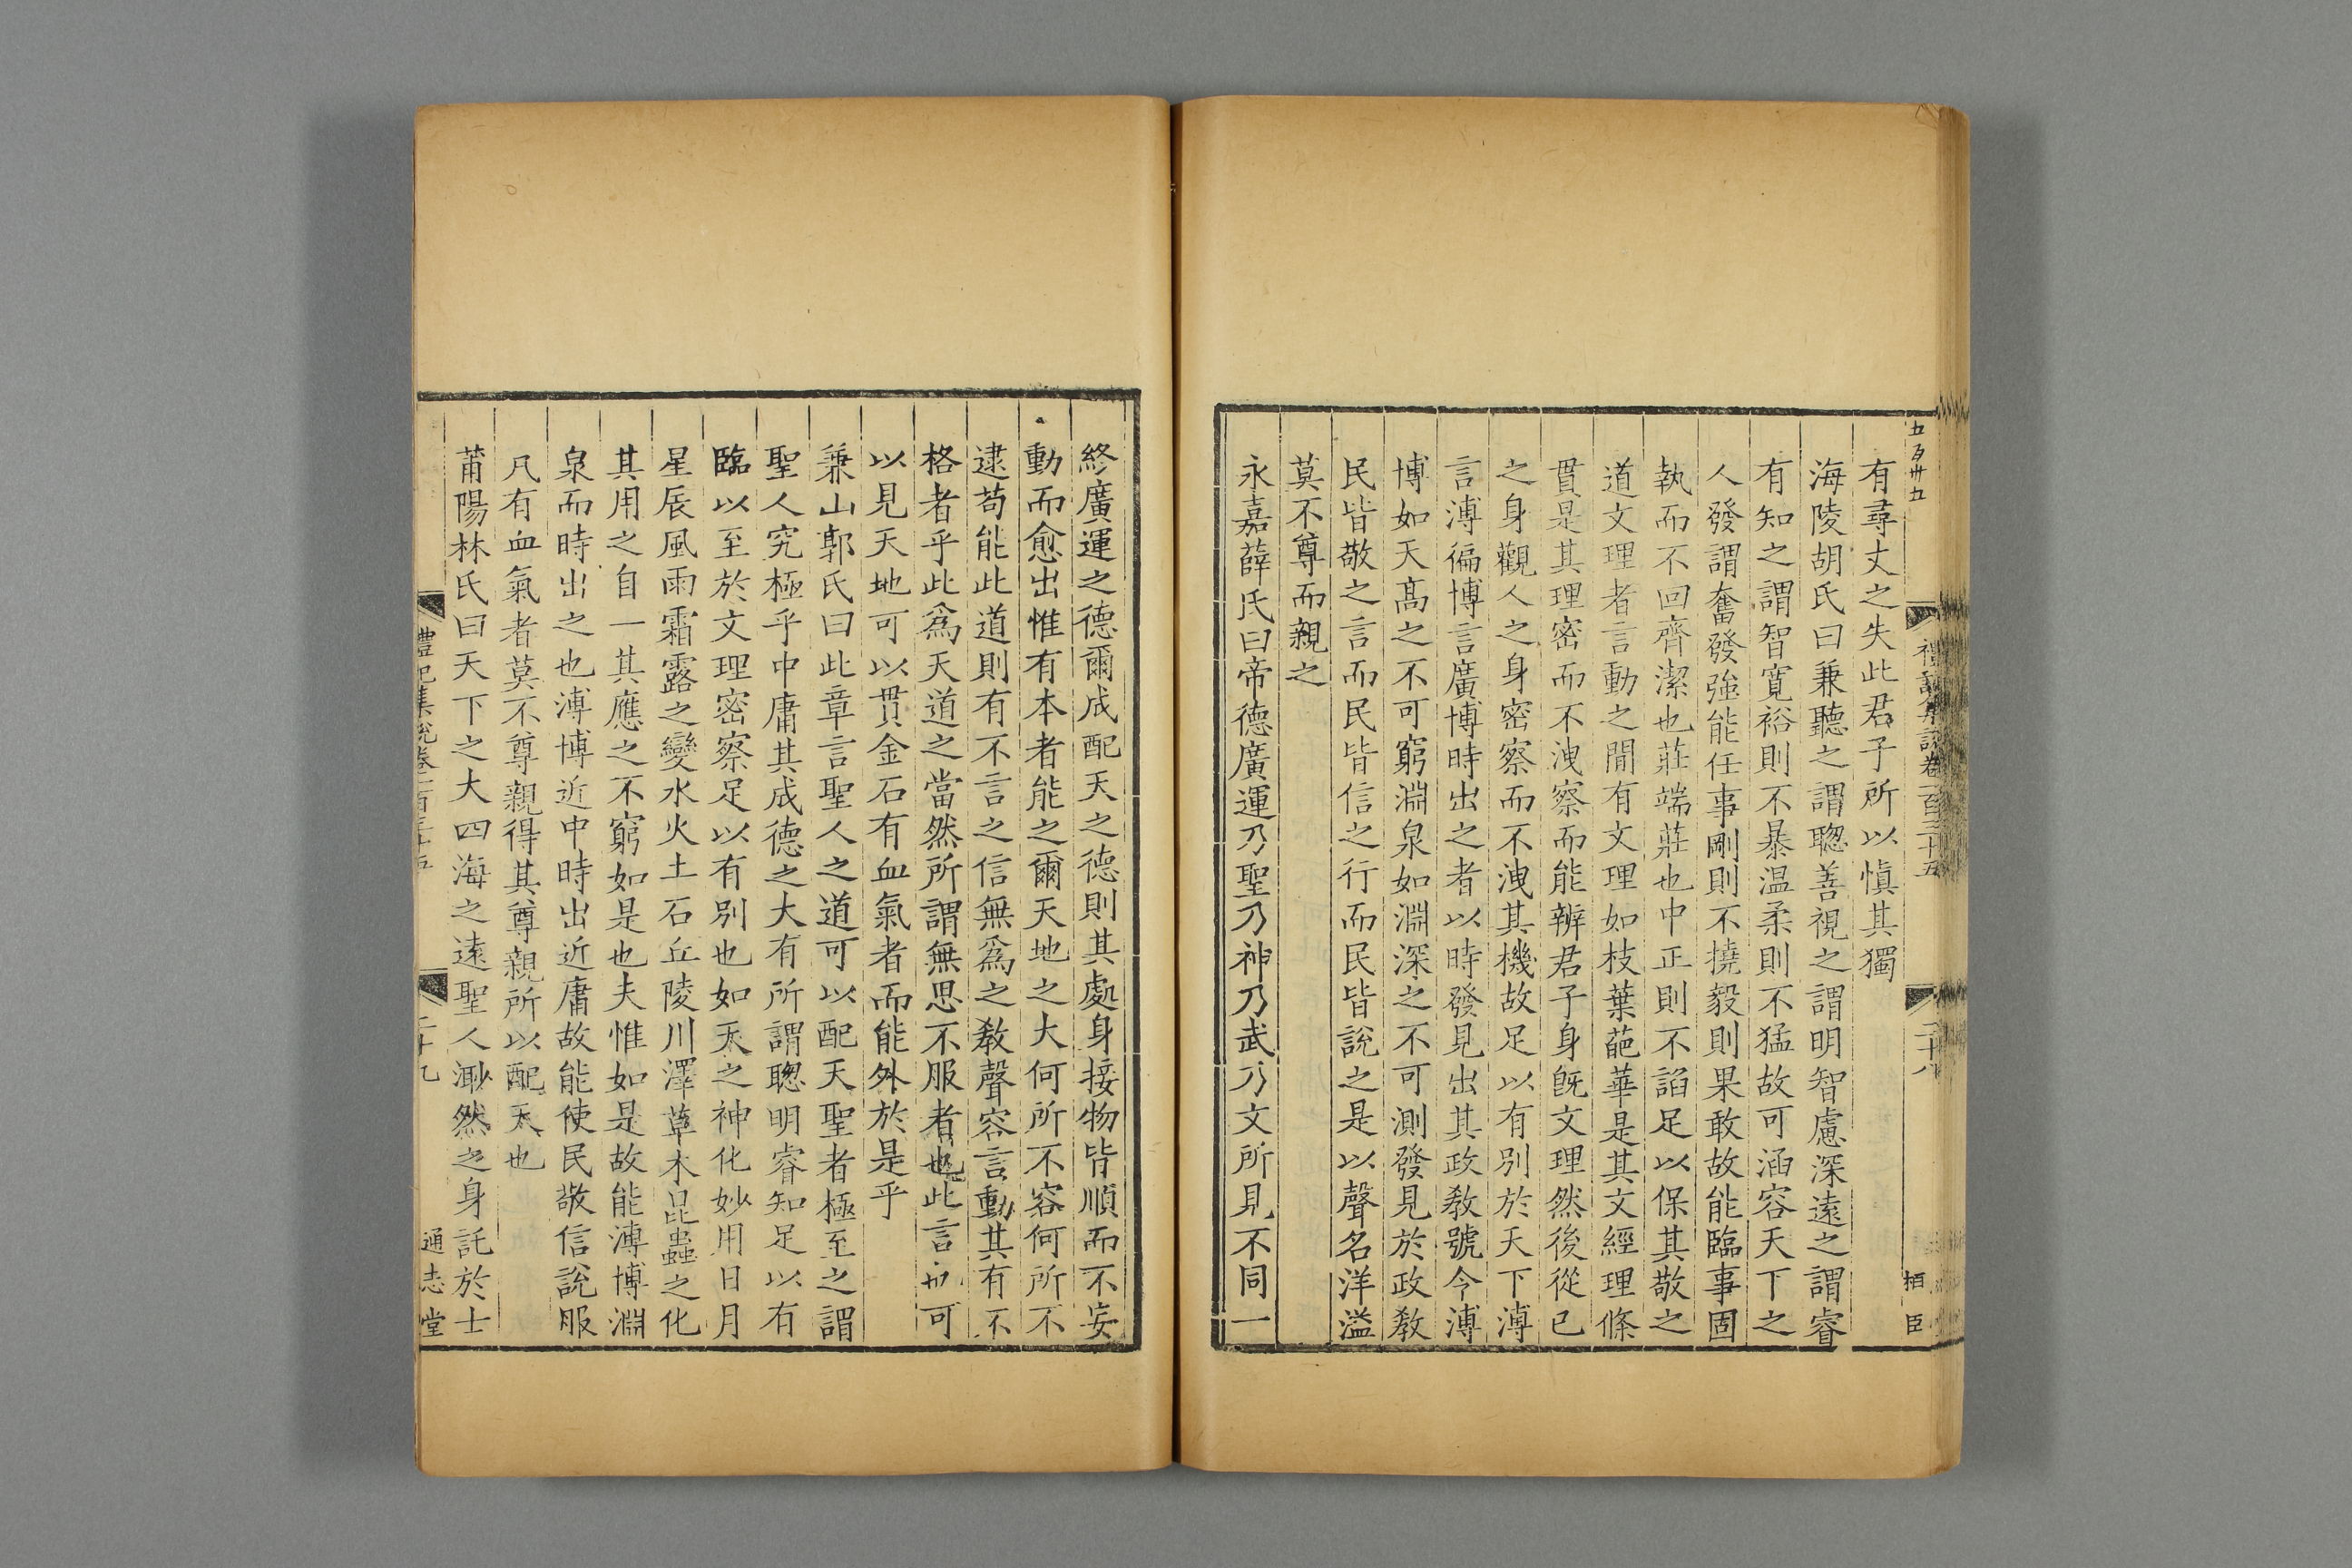 五百卅五
禮記集說卷一百三十五
二十八
栢臣
有尋丈之失此君子所以慎其獨
海陵胡氏曰兼聽之謂聰善視之謂明智慮深遠之謂睿
有知之謂智寬裕則不暴温柔則不猛故可涵容天下之
人發謂奮發強能任事剛則不撓毅則果敢故能臨事固
執而不回齊潔也莊端莊也中正則不謟足以保其敬之
道文理者言動之閒有文理如枝葉葩華是其文經理條
貫是其理密而不洩察而能辨君子身旣文理然後從已
之身觀人之身密察而不洩其機故足以有別於天下溥
言溥徧博言廣博時出之者以時發見出其政敎號令溥
博如天髙之不可窮淵泉如淵深之不可測發見於政敎
民皆敬之言而民皆信之行而民皆說之是以聲名洋溢
莫不尊而親之
永嘉薛氏曰帝德廣運乃聖乃神乃武乃文所見不同一
終廣運之德爾成配天之德則其處身接物皆順而不妄
動而愈出惟有本者能之爾天地之大何所不容何所不
逮苟能此道則有不言之信無爲之敎聲容言動其有不
格者乎此爲天道之當然所謂無思不服者也此言也可
以見天地可以貫金石有血氣者而能外於是乎
兼山郭氏曰此章言聖人之道可以配天聖者極至之謂
聖人究極乎中庸其成德之大有所謂聰明睿知足以有
臨以至於文理密察足以有別也如天之神化妙用日月
星辰風雨霜露之變水火土石丘陵川澤草木昆蟲之化
其用之自一其應之不窮如是也夫惟如是故能溥博淵
泉而時出之也溥博近中時出近庸故能使民敬信說服
凡有血氣者莫不尊親得其尊親所以配天也
莆陽林氏曰天下之大四海之遠聖人渺然之身託於士
禮記集說卷一百三十五
二十九
通志堂